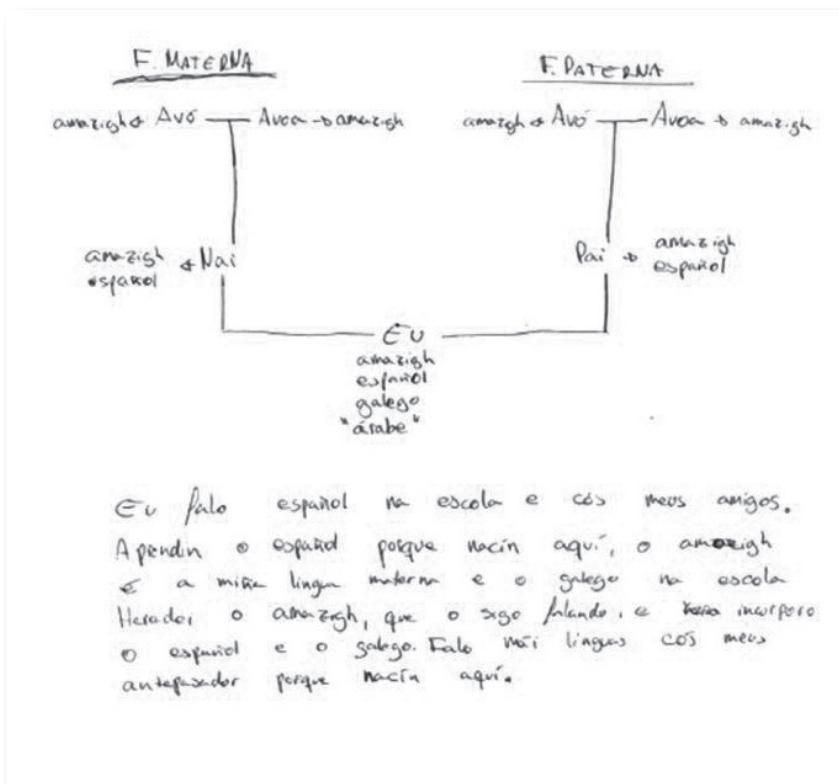 F. MATERNA
F. PATERNA
amazigh ← Avó — Avoa → amazigh
amazgh ← Avó — Avoa → amazigh
amazigh
español ← Nai
Pai → amazigh
español
EU
amazigh
español
galego
"árabe"
Eu falo español na escola e cós meus amigos.
Aprendin o español porque nacín aquí, o amazigh
é a miña lingua materna e o galego na escola
Herdei o amazigh, que o sigo falando, e incorporo
o español e o galego. Falo mái linguas cós meus
antepasador porque nacín aquí.